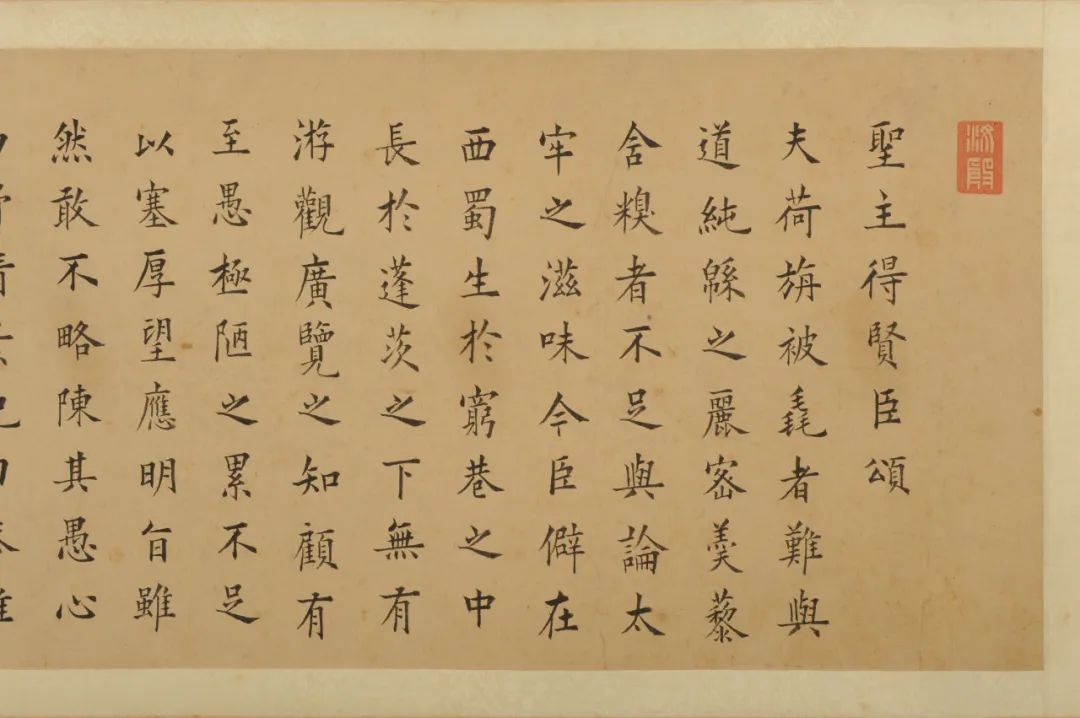 聖主得賢臣頌
夫荷旃被毳者難與
道純緜之麗密羹藜
含糗者不足與論太
牢之滋味今臣僻在
西蜀生於窮巷之中
長於蓬茨之下無有
游觀廣覽之知顧有
至愚極陋之累不足
以塞厚望應明旨雖
然敢不略陳其愚心